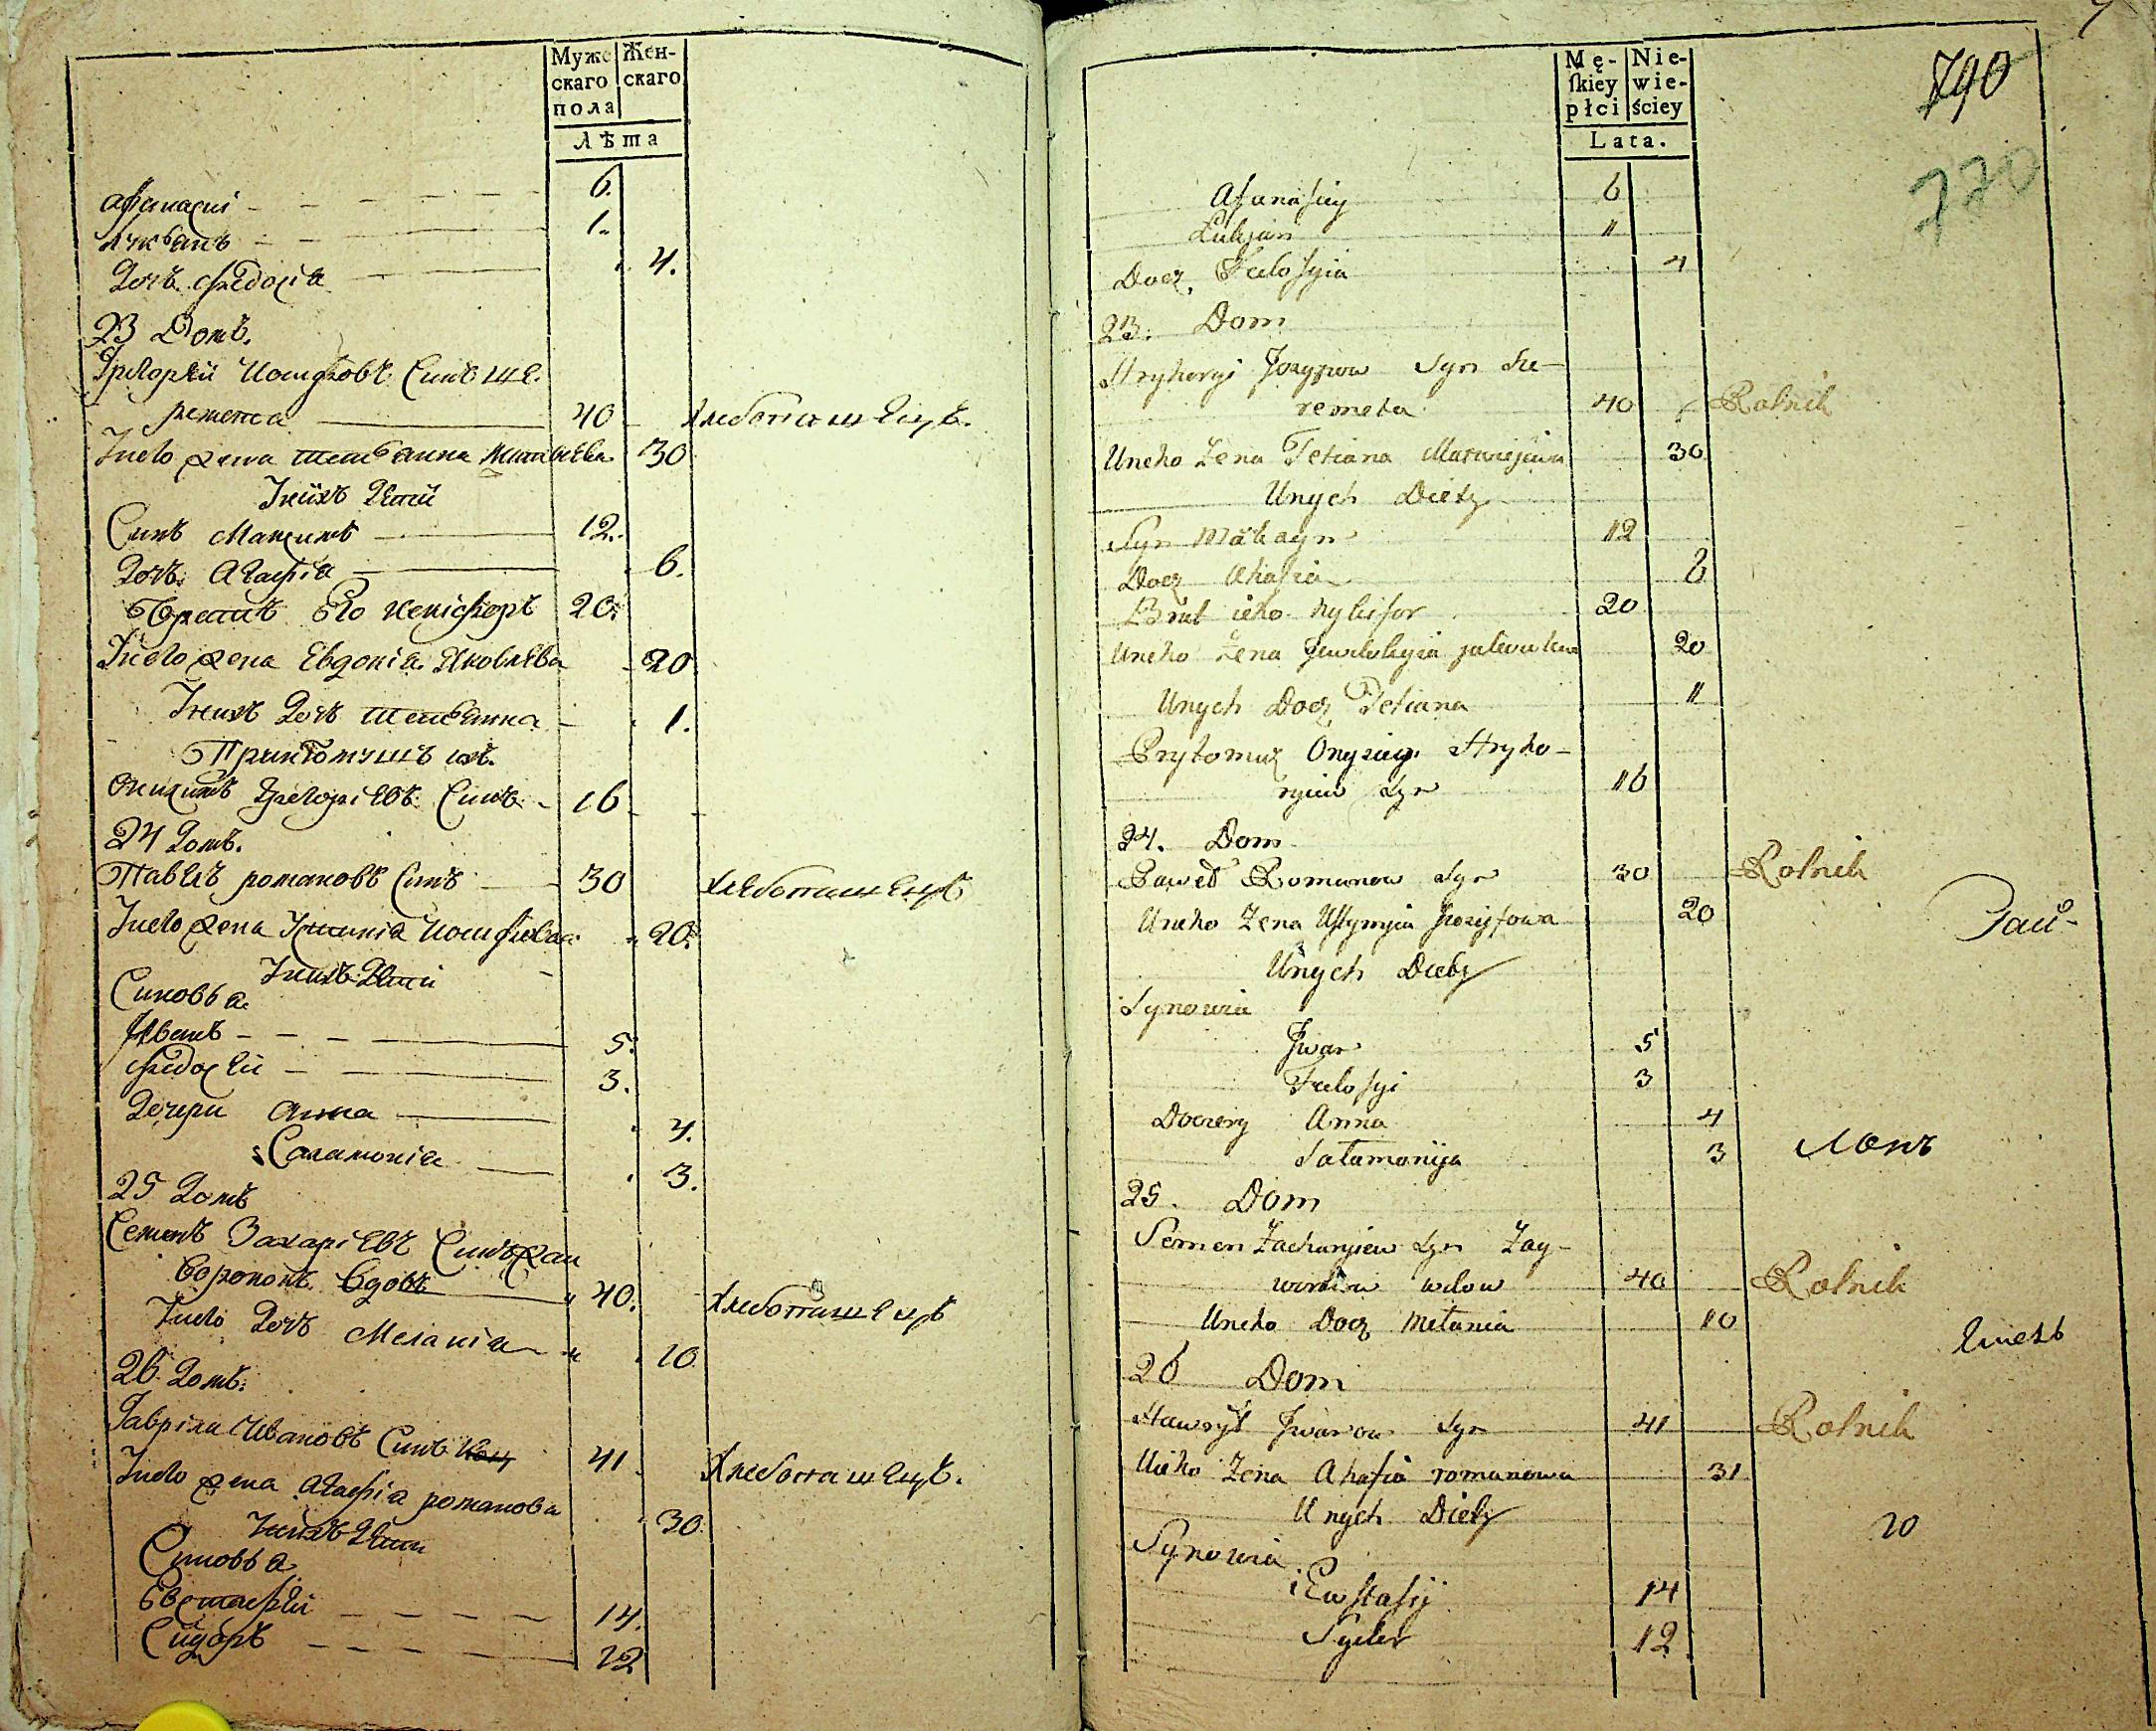 Муже Жен-
скаго скаго
пола
Лѣта
Афанасиі 6.
Лукьянъ 1.
Дочь Федосіа 4.
23 Домъ.
Григорѣй Иосифовъ Синъ Ше-
ремета 40 Хлебопашецъ.
Унего жена Татьянна Матвіева 30
Унихъ Дети
Синъ Максимъ 12.
Дочь Агафіа 6.
Братъ Его Никифоръ 20.
Унего жена Евдокіа Яковлева 20
Унихъ Дочь Татьянна 1.
Притомушъ
Онисимъ Григоріевъ Синъ 16
24 Домъ.
Павелъ романовъ Синъ 30 Хлебопашецъ
Унего жена Устиніа Иосифова 20.
Унихъ Дети
Синовьа
Иванъ 5.
Федосѣй 3.
Дочери Анна 4.
Саламоніа 3.
25 Домъ
Семенъ Захаріевъ Синъ Зай
воронокъ Вдовъ 40. Хлебопашецъ
Унего Дочь Меланіа 10
26 Домъ.
Гавріла Ивановъ Синъ 41 Хлебопашецъ.
Унего жена Агафіа романова 30
Унихъ Дети
Синовьа
Евстафѣй 14.
Сидоръ 12
Mę- Nie-
ſkiey wie-
płci ściey
Lata.
790
770
Afanasiy 6
Łukjan 11
Docz Fedosyia 4
23. Dom
Hryhoryi Jozypow Syn Sze-
remeta 40 Rolnik
Uneho Żena Tetiana Matwiejewa 30
Unych Diety
Syn Maksym 12
Docz Ahafia 6
Brat ieho Nykifor 20
Uneho Żena Jewdokyia Jakowlewa 20
Unych Docz Tetiana 11
Prytomuż Onysiey Hryho-
ryiew Syn 16
24. Dom
Paweł Romanow Syn 30 Rolnik
Uneho Żena Ustynyia Jozyfowa 20
Unych Diety
Synowia
Jwan 5
Fedosyi 3
Doczery Anna 4
Sałamonija 3
25. Dom
Semen Zacharyiew Syn Zay-
woronow wdow 40 Rolnik
Uneho Docz Mełania 10
26 Dom
Hawrył Jwanow Syn 41 Rolnik
Uieho Żena Ahafia romanowa 31
Unych Diety
Synowia
Ewstafij 14
Syder 12
20